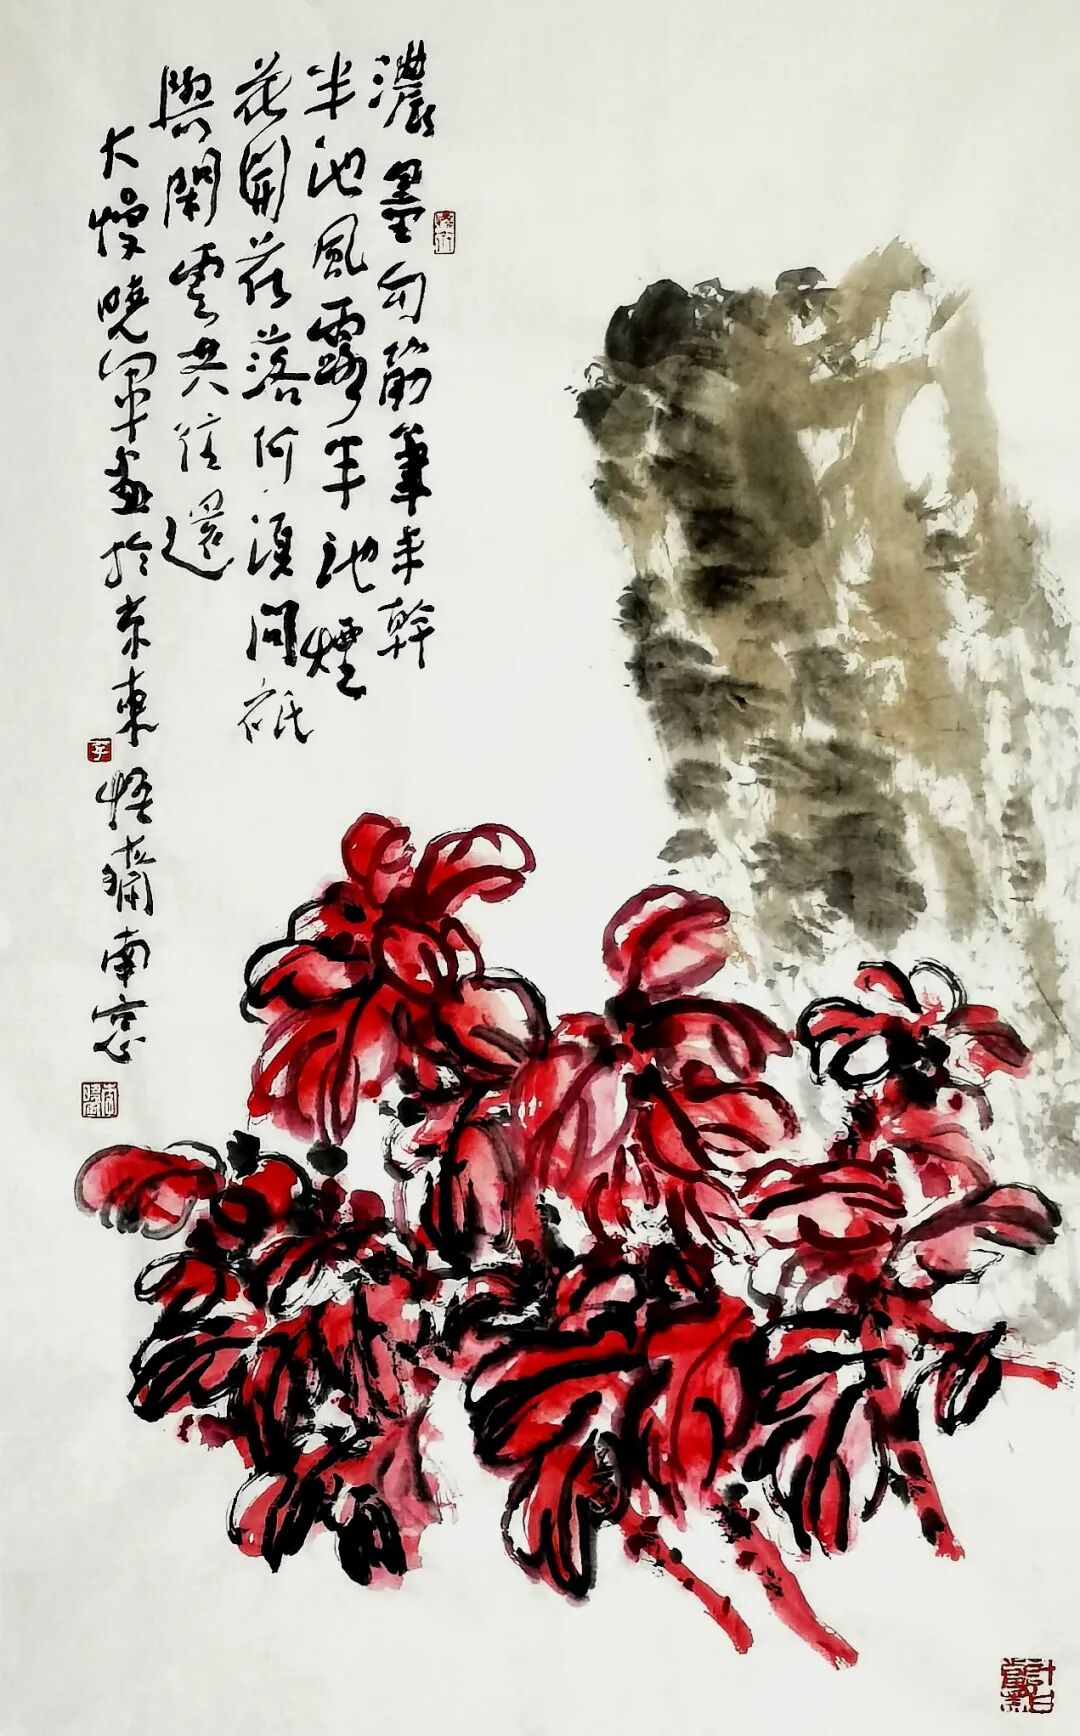 濃墨勾筋筆未幹
半池風露半池煙
花開花落何須問祇
與閑雲共往還
大慢曉軍畫於京東悟癡南窓